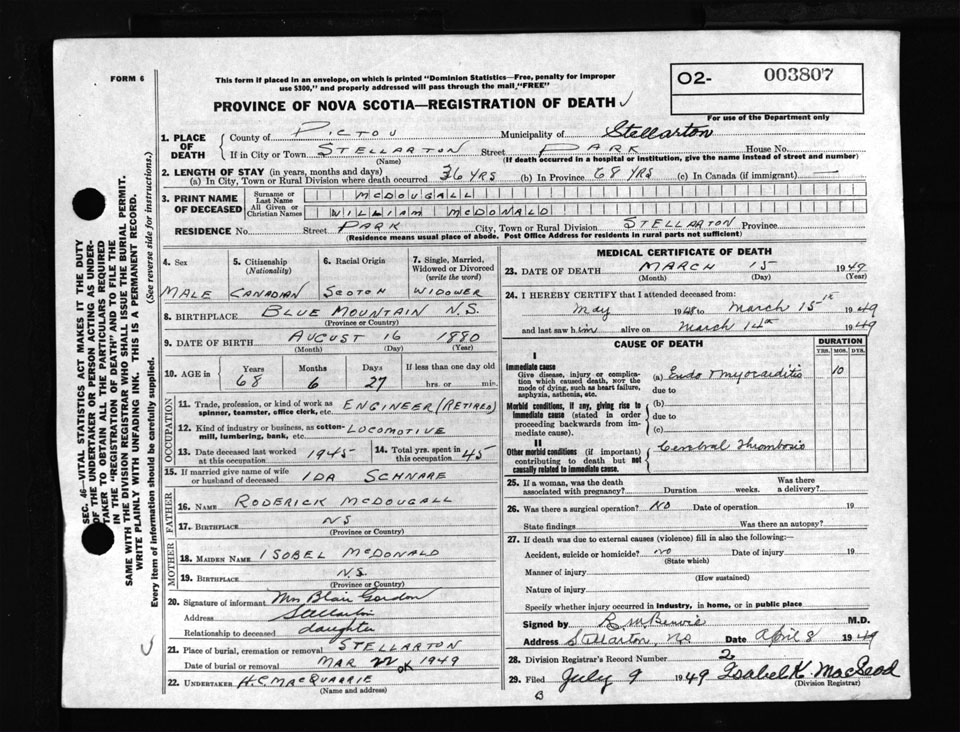 FORM 6
This form if placed in an envelope, on which is printed "Dominion Statistics—Free, penalty for improper
use $300," and properly addressed will pass through the mail "FREE"
O2- 003807
For use of the Department only
PROVINCE OF NOVA SCOTIA—REGISTRATION OF DEATH
1. PLACE OF DEATH
County of PICTOU Municipality of Stellarton
If in City or Town STELLARTON Street PARK House No.
(Name) (If death occurred in a hospital or institution, give the name instead of street and number)
2. LENGTH OF STAY (in years, months and days)
(a) In City, Town or Rural Division where death occurred 36 YRS (b) In Province 68 YRS (c) In Canada (if immigrant) —
3. PRINT NAME OF DECEASED
Surname or Last Name MCDOUGALL
All Given or Christian Names WILLIAM MCDONALD
RESIDENCE No. Street PARK City, Town or Rural Division STELLARTON Province
(Residence means usual place of abode. Post Office Address for residents in rural parts not sufficient)
4. Sex MALE
5. Citizenship (Nationality) CANADIAN
6. Racial Origin SCOTCH
7. Single, Married, Widowed or Divorced (write the word) WIDOWER
8. BIRTHPLACE BLUE MOUNTAIN N.S.
(Province or Country)
9. DATE OF BIRTH AUGUST 16 1880
(Month) (Day) (Year)
10. AGE in Years 68 Months 6 Days 27 If less than one day old hrs. or min.
OCCUPATION
11. Trade, profession, or kind of work as spinner, teamster, office clerk, etc. ENGINEER (RETIRED)
12. Kind of industry or business, as cotton-mill, lumbering, bank, etc. LOCOMOTIVE
13. Date deceased last worked at this occupation 1945
14. Total yrs. spent in this occupation 45
15. If married give name of wife or husband of deceased IDA SCHNARE
FATHER
16. NAME RODERICK MCDOUGALL
17. BIRTHPLACE NS
(Province or Country)
MOTHER
18. MAIDEN NAME ISOBEL MCDONALD
19. BIRTHPLACE N.S.
(Province or Country)
20. Signature of informant Mrs Blair Gordon
Address Stellarton
Relationship to deceased daughter
21. Place of burial, cremation or removal STELLARTON
Date of burial or removal MAR 22 1949
OK
22. UNDERTAKER H.C. MACQUARRIE
(Name and address)
MEDICAL CERTIFICATE OF DEATH
23. DATE OF DEATH MARCH 15 1949
(Month) (Day) (Year)
24. I HEREBY CERTIFY that I attended deceased from:
May 1948 to March 15th 1949
and last saw him alive on March 14th 1949
CAUSE OF DEATH
DURATION
YRS. MOS. DYS.
I
Immediate cause
Give disease, injury or complication which caused death, NOT the mode of dying, such as heart failure, asphyxia, asthenia, etc.
(a) Endo & myocarditis 10
due to
Morbid conditions, if any, giving rise to immediate cause (stated in order proceeding backwards from immediate cause).
(b)
due to
(c)
II
Other morbid conditions (if important) contributing to death but not causally related to immediate cause.
Cerebral Thrombosis
25. If a woman, was the death associated with pregnancy? Duration weeks. Was there a delivery?
26. Was there a surgical operation? NO Date of operation 19
State findings Was there an autopsy?
27. If death was due to external causes (violence) fill in also the following:
Accident, suicide or homicide? no Date of injury 19
(State which)
Manner of injury
(How sustained)
Nature of injury
Specify whether injury occurred in industry, in home, or in public place
Signed by M.D.
Address Stellarton, NS Date April 8 1949
28. Division Registrar's Record Number 2
29. Filed July 9 1949 Isabel K. MacLeod
(Division Registrar)
B
SEC. 46—VITAL STATISTICS ACT MAKES IT THE DUTY
OF THE UNDERTAKER OR PERSON ACTING AS UNDER-
TAKER TO OBTAIN ALL THE PARTICULARS REQUIRED
IN THE "REGISTRATION OF DEATH" AND TO FILE THE
SAME WITH THE DIVISION REGISTRAR WHO SHALL ISSUE THE BURIAL PERMIT.
WRITE PLAINLY WITH UNFADING INK. THIS IS A PERMANENT RECORD.
Every item of information should be carefully supplied. (See reverse side for instructions.)